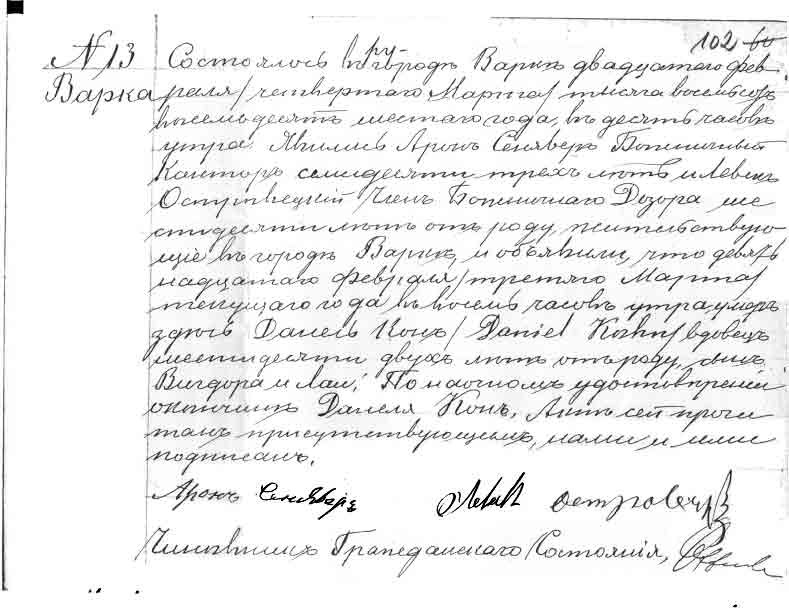 102 60
N 13 Состоялось въ городѣ Варкѣ двадцатаго фев
Варка раля/четвертаго Марта/тысяча восемьсотъ
восемьдесятъ шестаго года, въ десять часовъ
утра. Явились Аронъ Сенкверъ Божничный
Канторъ семидесяти трехъ лѣтъ и Левекъ
Островецкій Членъ Божничнаго Дозора ше
стидесяти лѣтъ отъ роду, жительствую
щіе въ городѣ Варкѣ, и объявили, что девят
надцатаго Февраля/третьяго Марта/
текущаго года въ восемь часовъ утра, умеръ
здѣсь Данель Конъ/Daniel Kohn/вдовецъ
шестидесяти двухъ лѣтъ отъ роду, сынъ
Вигдора и Лаи. По наочномъ удостовѣреніи
о кончинѣ Данеля Конъ, Актъ сей прочи
танъ присутствующимъ, нами и ими
подписанъ.
Аронъ
Чиновникъ Гражданскаго Состоянія,